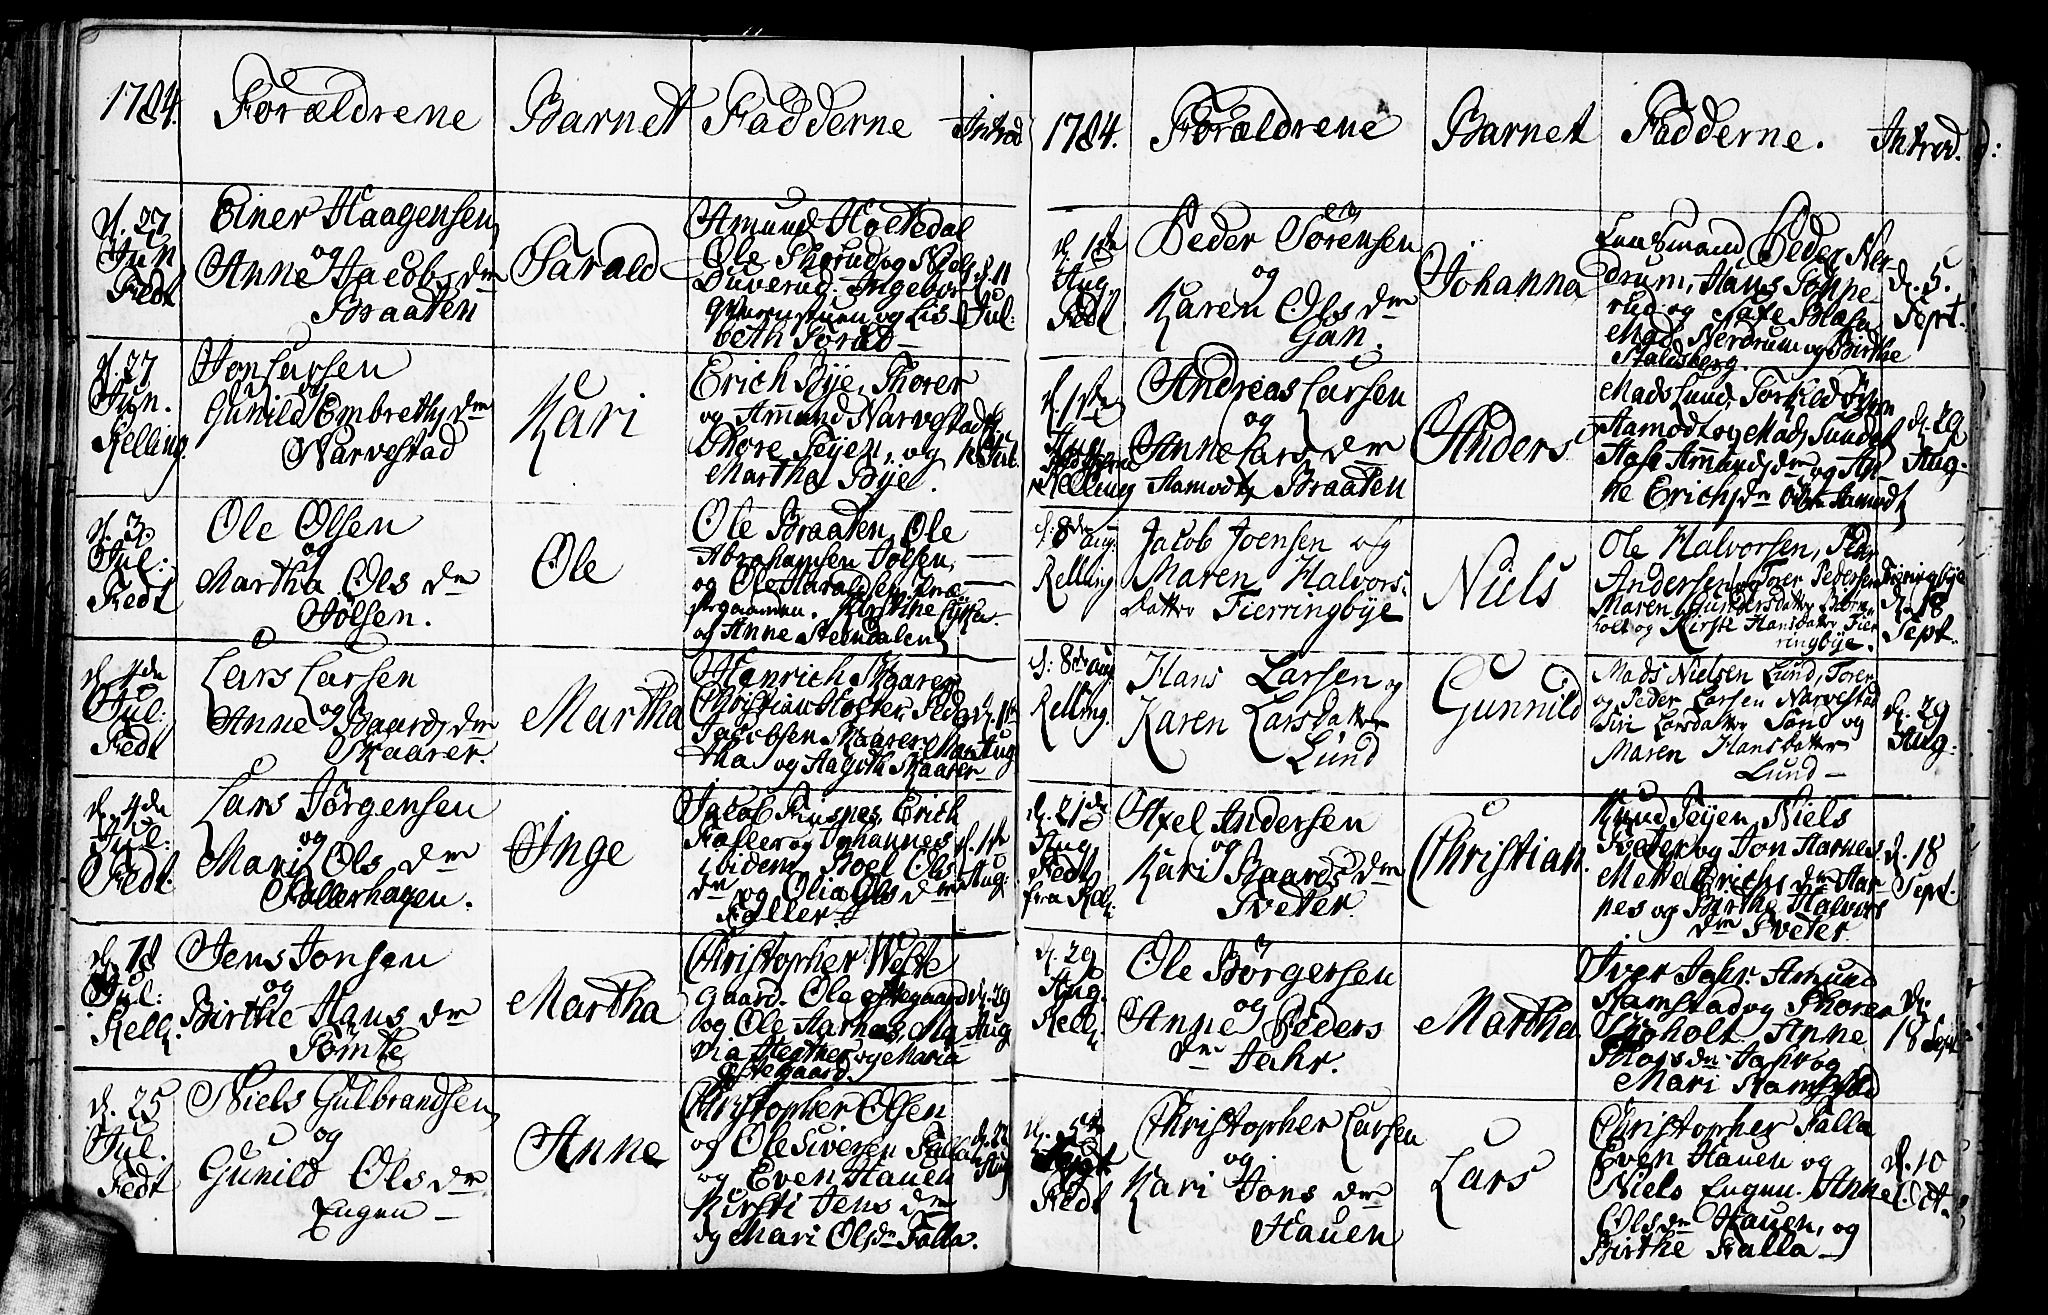 1784. Forældrene Barnet Fadderne Introd
d. 27
Jun
Fedt
Einer Haagensen
og
Anne Jacobs dm
Braaten
Harald
Amund Holtedal
Ole Thorud og Niels
Duverud. Ingebor
og Lis-
beth Sorud
d. 11
Jul:
d. 27
Jun.
Kelling.
Jon Larsen
og
Gunild Embreths dm
Narvestad
Kari
Erich Bye, Thorer
og Amund Narvestad
Thore Seyen, og
Martha Bye.
d. 3.
Jul:
Fedt
Ole Olsen
og
Martha Ols dm
Jølsen.
Ole
Ole Braaten, Ole
Abrahamsen Jølsen,
og Ole Haraldsen
Kirstine
og Anne Steendalen
d. 4de
Jul:
Fedt
Lars Larsen
og
Anne Baards dm
Skaarer.
Martha
Henrich Skaarer
Christian Holter Peder
Jacobsen Skaarer. Mar
tha og Aagothe Skaarer
d. 1te
Aug
d. 4de
Jul:
Fedt.
Lars Jørgensen
og
Mari Ols dm
Fallerhagen.
Inge
Jacob Erich
Faller og Johannes
ibidem. Boel Ols
dm og Olia Ols dm
Faller
d. 1te
Aug:
d. 18
Jul:
Kell:
Jens Jonsen
og
Birthe Hans dm
Tomte
Martha
Christopher Weste
gaard. Ole Østegaard
og Ole Aarnæs, Ma
ria Hertner og Maria
Østegaard.
d. 29
Aug
d. 25
Jul.
Fedt
Niels Gulbrandsen
og
Gunild Ols dm
Engen
Anne
Christopher Olsen
og Ole Siversen Falla
og Even Hauen
Kirsti Jens dm
og Mari Ols dm Falla.
Aug
1784. Forældrene Barnet Fadderne. Introd.
d. 1te
Aug.
Fedt
Peder Sørensen
og
Karen Ols dm
Gan.
Johanna
Lensmand Peder Ner
drum, Hans Tonne-
rud og
Mad. Nerdrum og Birthe
Stalsberg.
d. 5.
Sept.
d. 1te
Aug
Kelling
Andreas Larsen
og
Anne Lars dm
Aamodt Braaten
Anders
Mads Lund, Torkild
Aamodt og Mads Sundet
Aase Amunds dm og An-
ne Erichs dm Aamodt
d. 29
Aug.
d: 8de aug.
Kelling
Jacob Joensen og
Maren Halvors:
datter Fierringbye
Niels
Ole Halvorsen, Peder
Andersen og Torer Pedersen
Maren Gundersdatter Biørn
holt og Kirsti Hansdatter Fier
ringbye.
Fierringbye
d. 18
Sept.
d: 8de aug
Kelling.
Hans Larsen og
Karen Larsdatter
Lund
Gunnild
Mads Nielsen Lund, Torer
og Peder Larsen Narvestad
Siri Larsdatter Sand og
Maren Hansdatter
Lund
d. 29
Aug:
d. 21de
Aug
Fedt
fra Kell:
Axel Andersen
og
Kari Baards dm
Tveter.
Christian.
Knud Seyen, Niels
Tveter og Jon Aarnes.
Mette Erichs dm Aar-
nes og Birthe Halvors
dm Tveter.
d. 18
Sept.
d. 29
Aug.
Kell:
Ole Børgersen
og
Anne Peders
dm Jahr.
Martha
Iver Jahr. Amund
Ramstad og Thorer
Anne
dm Jahr og
Mari Ramstad
d.
18 Sept
d. 5te
Sept
Fedt
Christopher Larsen
og
Kari Jons dm
Hauen
Lars
Christopher Falla
Even Hauen og
Niels Engen. Anne
Ols dm Hauen, og
Birthe Falla
d. 10
Oct.